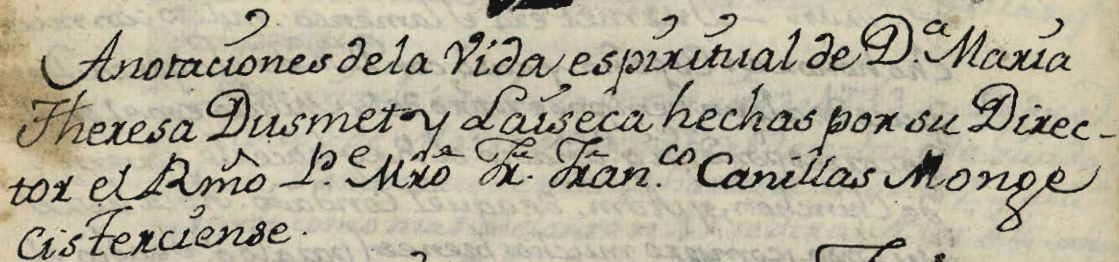 Anotaciones dela Vida espiritual de D.ª Maria
Theresa Dusmet y Laiseca hechas por su Direc-
tor el Rmo P.e Mro Fr. Fran.co Canillas Monge
Cisterciense.